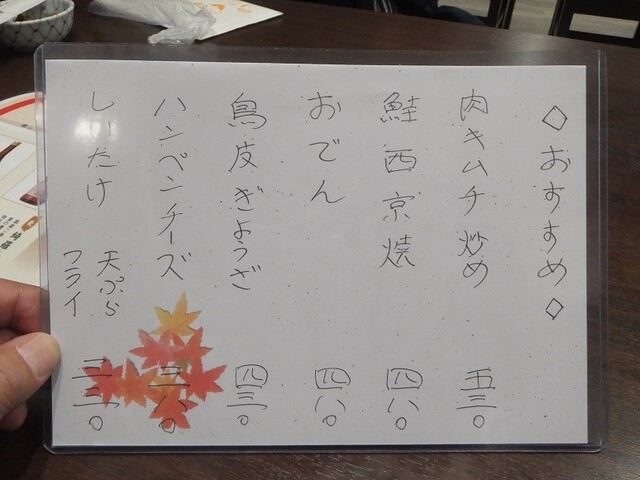 ◇おすすめ◇
肉キムチ炒め 五三〇
鮭西京焼 四八〇
おでん 四八〇
鳥皮ぎょうざ 四三〇
ハンペンチーズ 三八〇
しいたけ 天ぷら フライ 三三〇